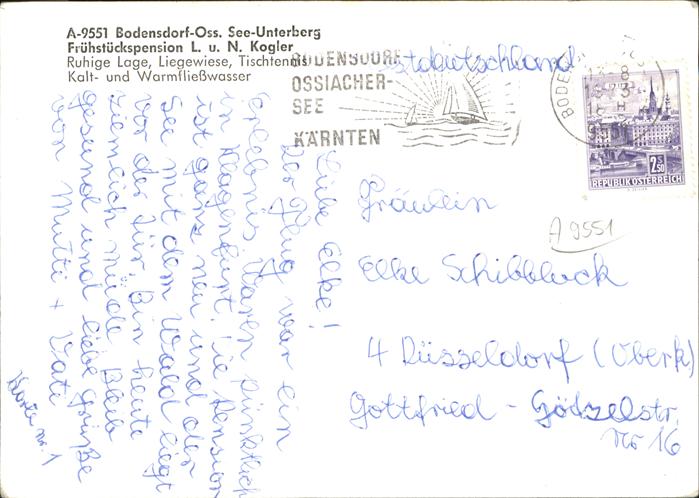 A-9551 Bodensdorf-Oss. See-Unterberg
Frühstückspension L. u. N. Kogler
Ruhige Lage, Liegewiese, Tischtennis
Kalt- und Warmfließwasser
BODENSDORF
OSSIACHER-
SEE
KÄRNTEN
2 S 50
REPUBLIK ÖSTERREICH
A 9551
Liebe Elke!
Der Flug war ein
Erlebnis. Waren pünktlich
in Klagenfurt. Die Pension
ist ganz neu und der
See mit dem Wald liegt
vor der Tür. Bin heute
ziemlich müde. Bleib
gesund und liebe Grüße
von Mutti + Vati
Karte Nr. 1
Westdeutschland
Fräulein
Elke Schibblock
4 Düsseldorf (Oberk)
Gottfried - Götzelstr.
Nr 16